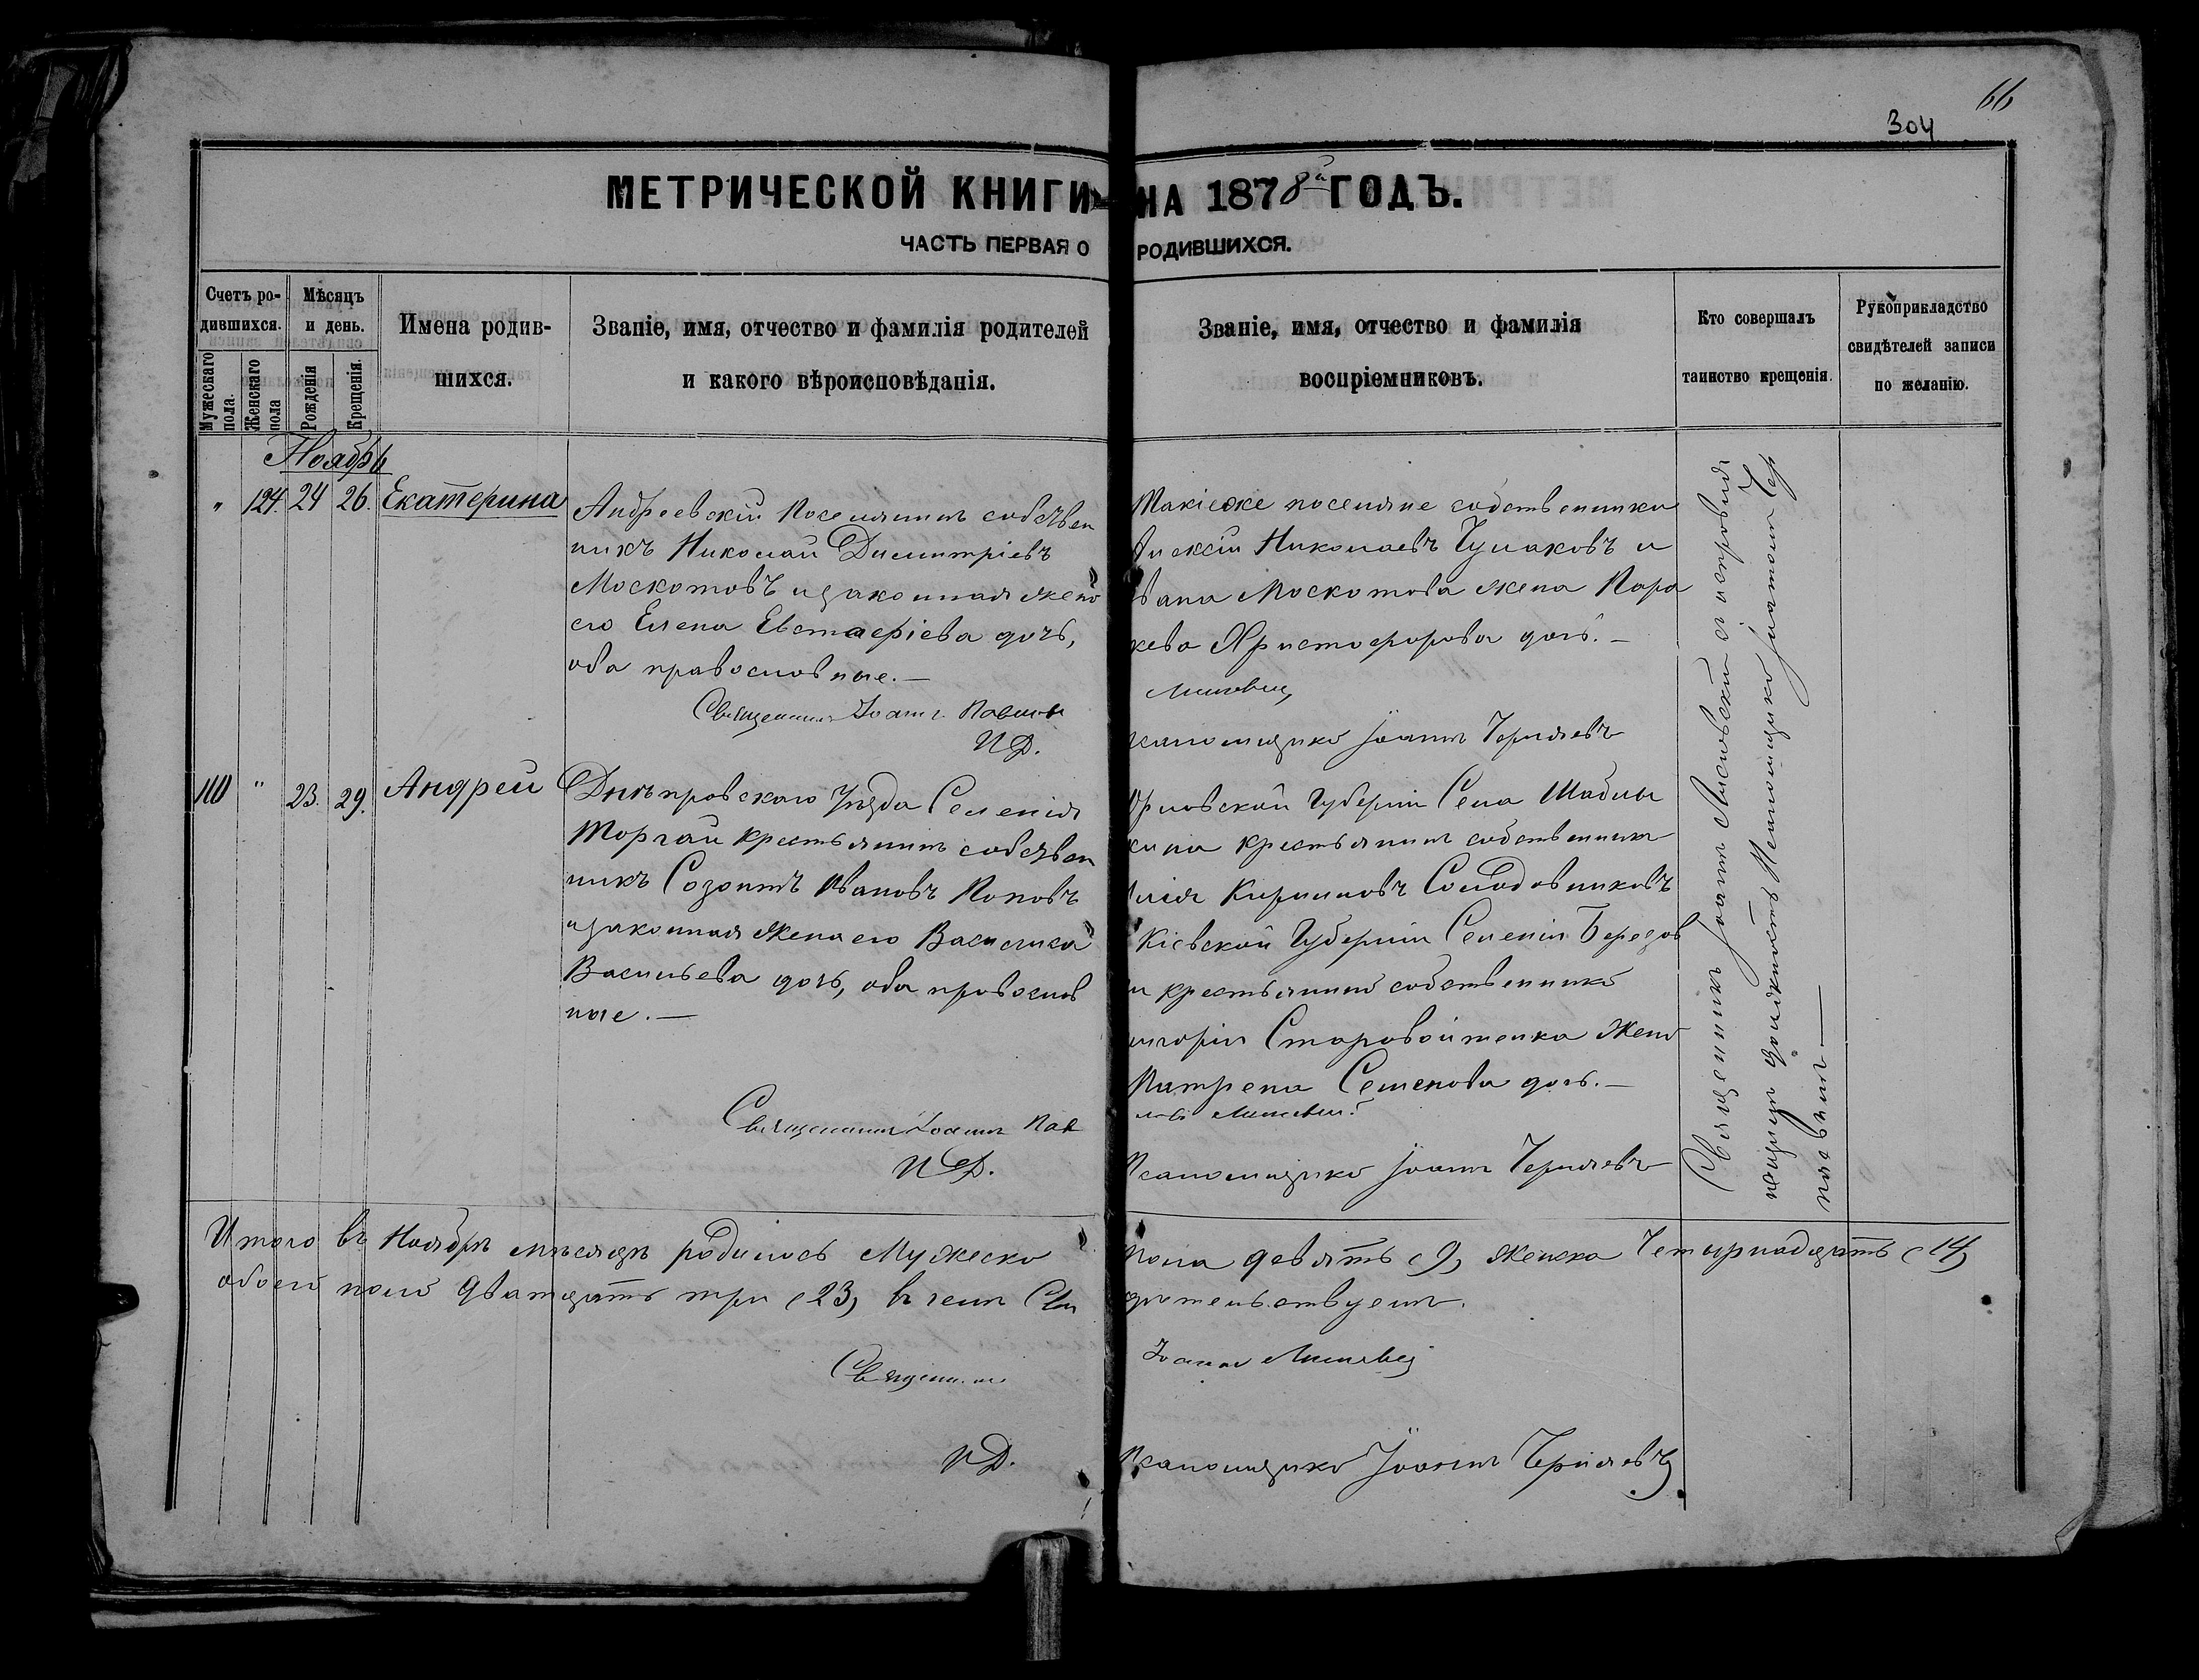 66
304
МЕТРИЧЕСКОЙ КНИГИ НА 1878й ГОДЪ.
ЧАСТЬ ПЕРВАЯ О РОДИВШИХСЯ.
Счетъ ро-
дившихся.
Мужескаго пола.
Женскаго пола
Мѣсяцъ
и день.
Рожденія
Крещенія.
Имена родив-
шихся.
Званіе, имя, отчество и фамилія родителей
и какого вѣроисповѣданія.
Званіе, имя, отчество и фамилія
воспріемниковъ.
Кто совершалъ
таинство крещенія.
Рукоприкладство
свидѣтелей записи
по желанію.
Ноябрь
" 124. 24 26. Екатерина
Андреевскій Поселянинъ собствен
никъ Николай Димитріевъ
Москотовъ и законная жена
его Елена Евстафіева дочь,
оба православные. —
Священникъ Іоаннъ
И Д.
Такіеже поселяне собственники
Николаевъ Чумаковъ и
вана Москотова жена Пара
кева Христофорова дочь. —
псаломщика Іоаннъ Черняевъ
110 " 23. 29. Андрей
Днѣпровскаго Уѣзда Селенія
Торгай Крестьянинъ собствен
никъ Созонтъ Ивановъ Поповъ
и законная жена его Василиса
Васильева дочь, оба православ
ные. —
Священникъ Іоаннъ
И Д.
Орловской Губерніи Села Шаблы
кина крестьянинъ собственникъ
Кириловъ Солодовниковъ
Кіевской Губерніи Селенія Березов
и крестьянина собственника
игорія Старовойтенка жена
Патрена Семенова дочь. —
Псаломщика Іоаннъ Черняевъ
Священникъ Іоаннъ и исправля
ющій должность Псаломщика Іоаннъ Чер
няевъ —
Итого въ Ноябрѣ мѣсяцѣ родилось Мужеска пола девять (9) женска Четырнадцать (14)
обоего пола Двадцать три (23) въ чемъ Сви дѣтельствуемъ.
Священникъ Іоаннъ
И Д. Псаломщика Іоаннъ Черняевъ